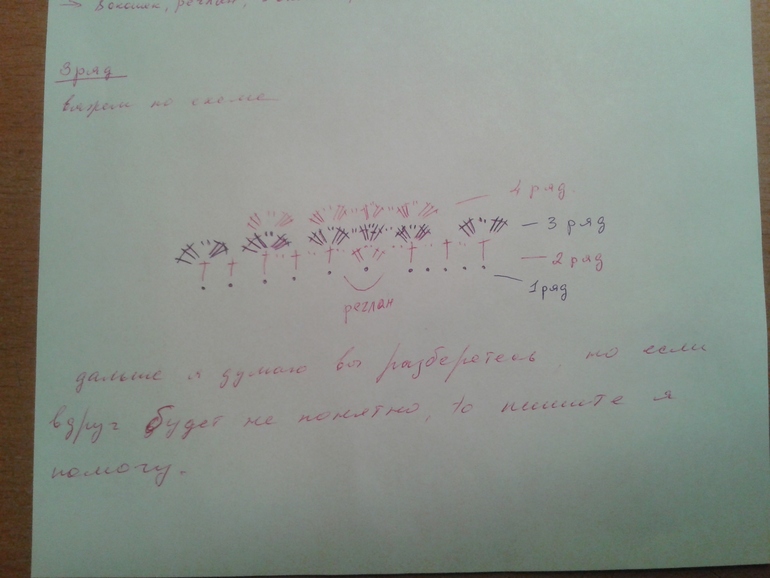 → 8 окошек, реглан,
3 ряд
вяжем по схеме
4 ряд.
3 ряд
2 ряд
1 ряд
реглан
дальше я думаю вы разберетесь, но если
вдруг будет не понятно, то пишите я
помогу.